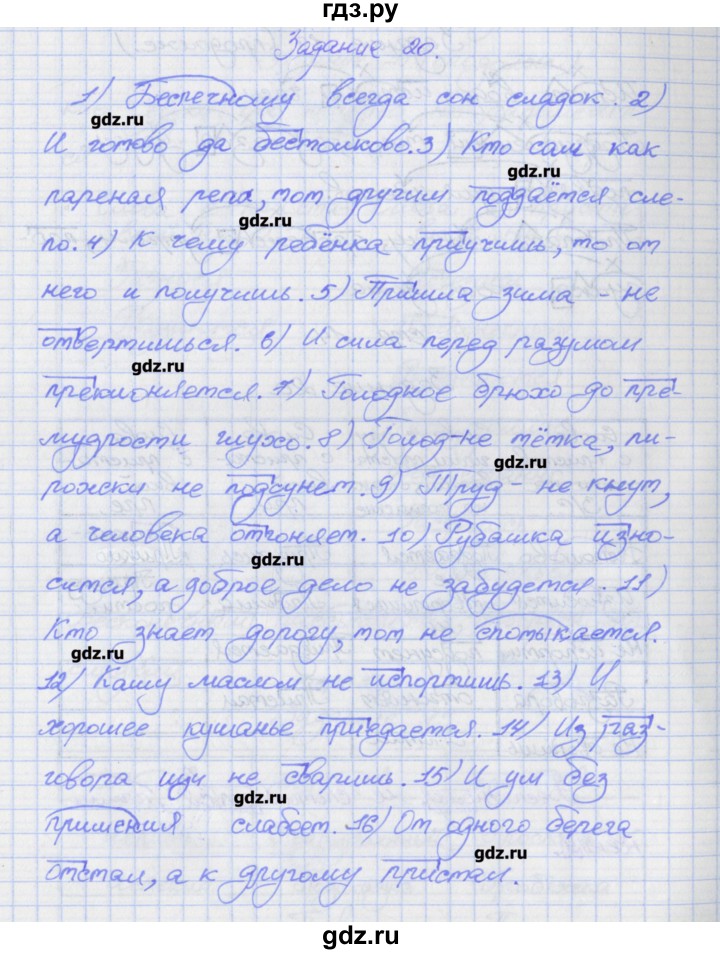 гдз.ру
Задание 20.
1) Беспечному всегда сон сладок. 2)
gdz.ru
И готово да бестолково. 3) Кто сам как
gdz.ru
пареная репа, тот другим поддаётся сле-
gdz.ru
по. 4) К чему ребёнка приучишь, то от
него и получишь. 5) Пришла зима - не
отвертишься. 6) И сила перед разумом
gdz.ru
преклоняется. 7) Голодное брюхо до пре-
мудрости глухо. 8) Голод-не тётка, пи-
gdz.ru
рожски не подсунет. 9) Труд - не кнут,
а человека отгоняет. 10) Рубашка изно-
gdz.ru
сится, а доброе дело не забудется. 11)
Кто знает дорогу, тот не спотыкается.
gdz.ru
12) Кашу маслом не испортишь. 13) И
хорошее кушанье приедается. 14) Из раз-
говора щи не сваришь. 15) И ум без
gdz.ru
пришения слабеет. 16) От одного берега
gdz.ru
отстал, а к другому пристал.
gdz.ru